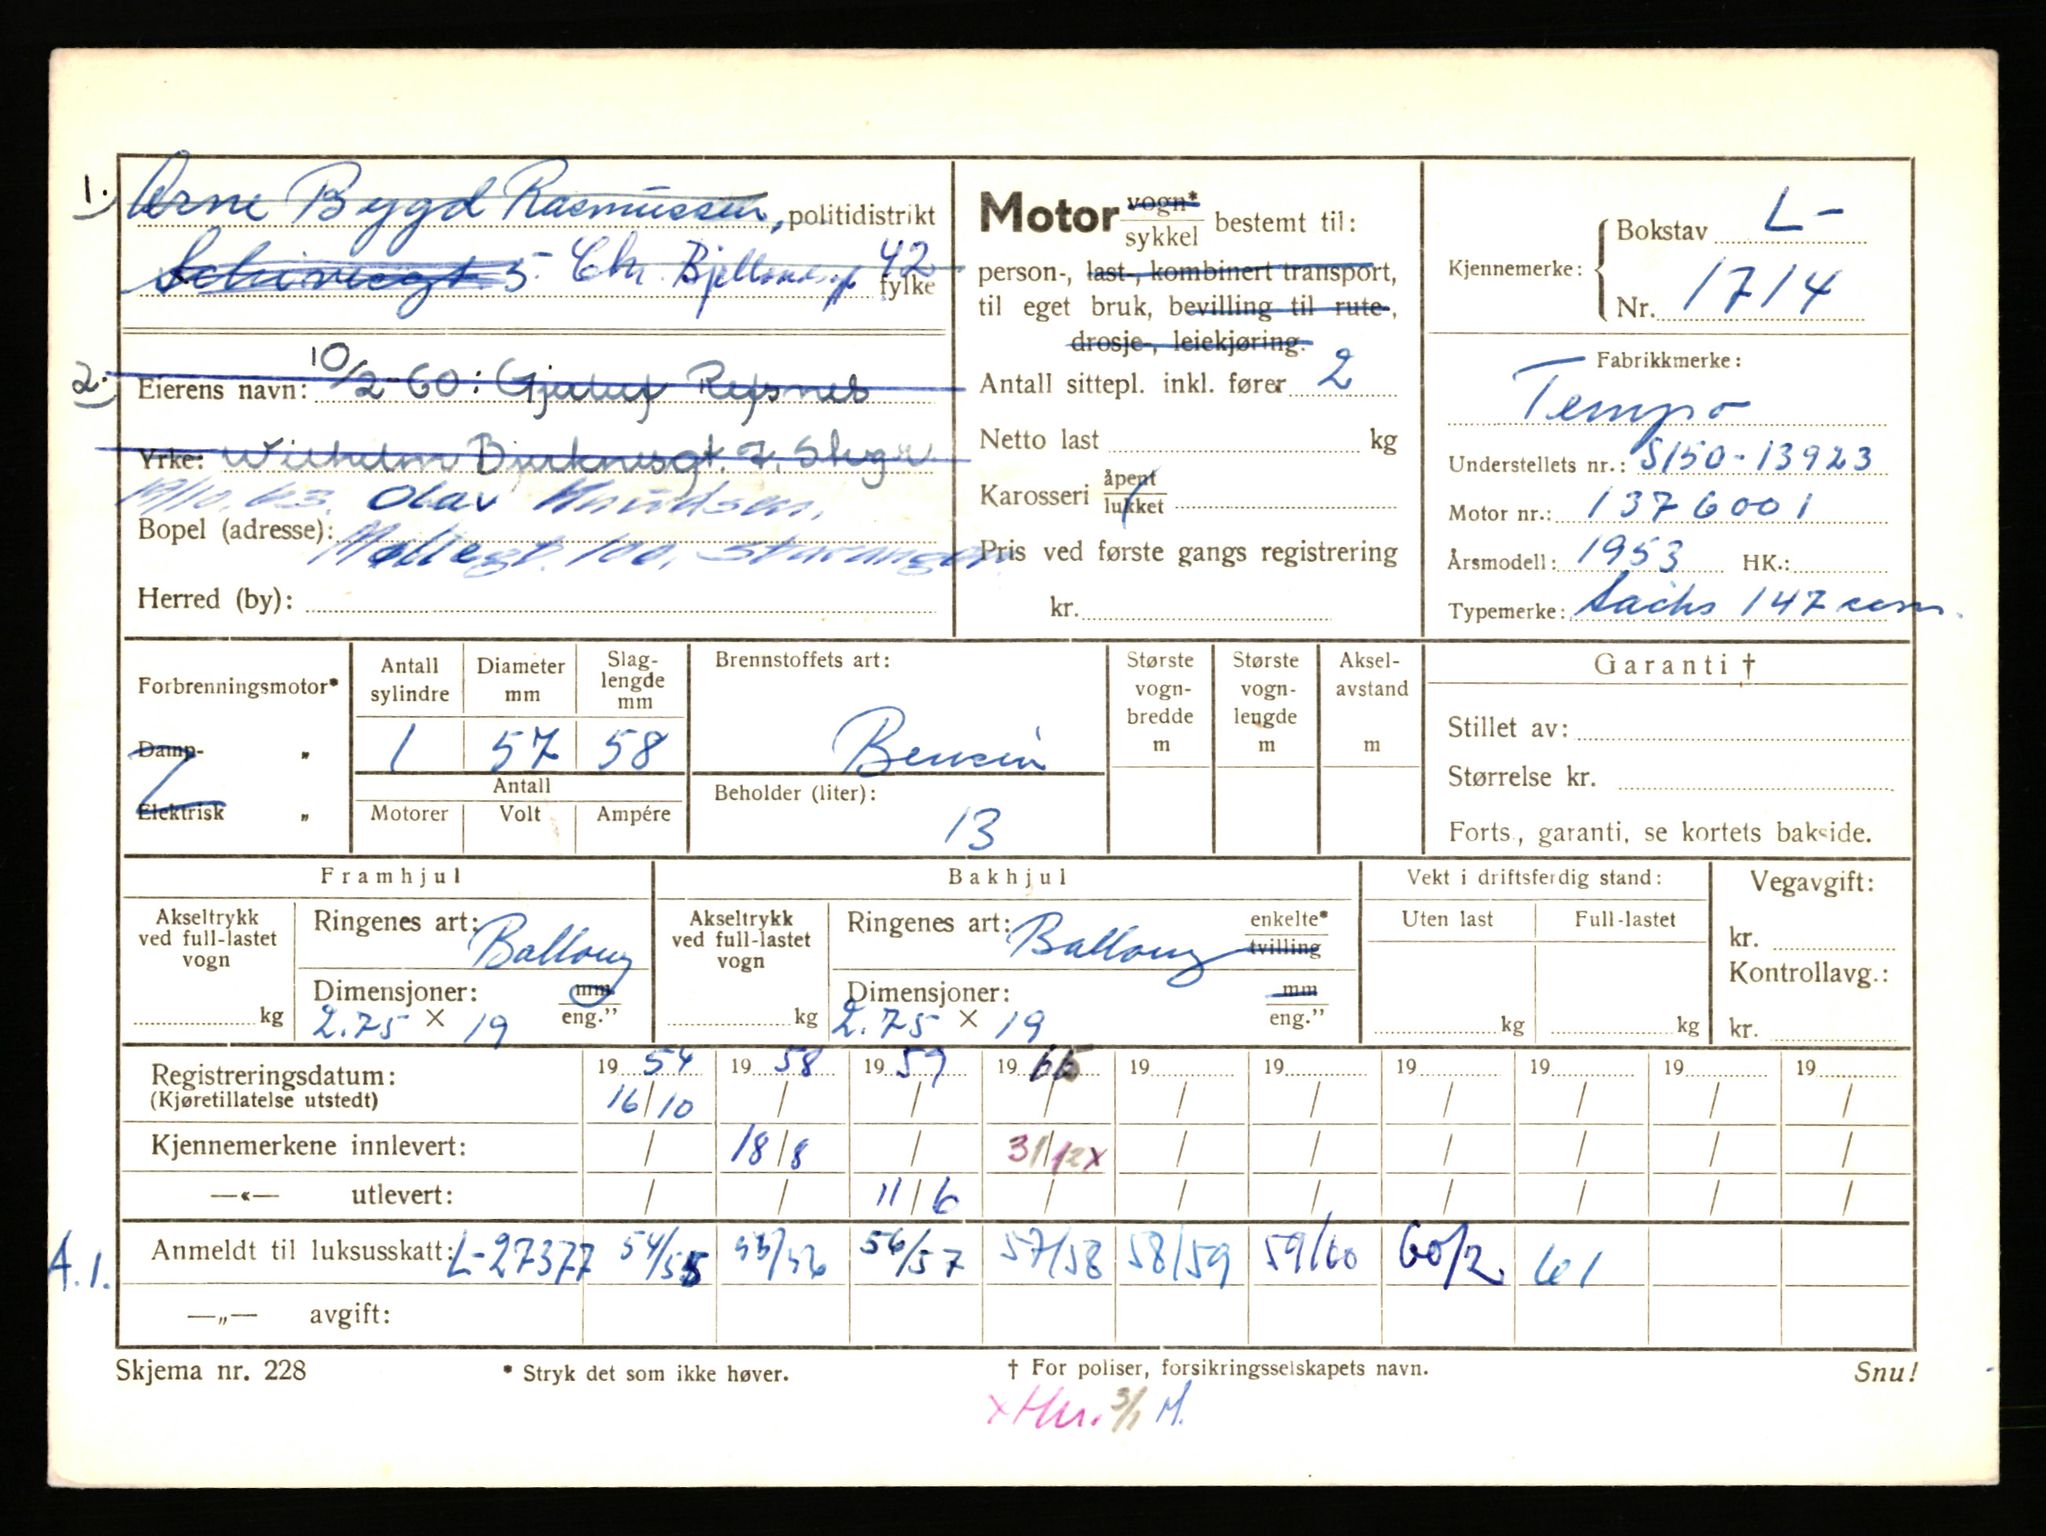 1. Arne Bygd Rasmussen, politidistrikt
5. Chr. Bjellandsgt 42 fylke
2. Eierens navn: 10/2-60: Refsnes
Yrke: Wilhelm Bjerknesgt. 7, Stvgr
19/10.63. Olav Knudsen,
Bopel (adresse): Møllegt. 100, Stavanger
Herred (by):
Motor vogn* sykkel bestemt til:
person-, last-, kombinert transport,
til eget bruk, bevilling til rute-,
drosje-, leiekjøring.
Antall sittepl. inkl. fører 2
Netto last kg
Karosseri åpent lukket
Pris ved første gangs registrering
kr.
Kjennemerke: Bokstav L-
Nr. 1714
Fabrikkmerke:
Tempo
Understellets nr.: S150-13923
Motor nr.: 1376001
Årsmodell: 1953 HK.:
Typemerke: Sachs 147 ccm.
Forbrenningsmotor*
Damp- „
Elektrisk „
Antall sylindre 1
Diameter mm 57
Slag-lengde mm 58
Antall
Motorer Volt Ampére
Brennstoffets art:
Bensin
Beholder (liter):
13
Største vogn-bredde m
Største vogn-lengde m
Aksel-avstand m
Garanti †
Stillet av:
Størrelse kr.
Forts., garanti, se kortets bakside.
Framhjul
Akseltrykk ved full-lastet vogn kg
Ringenes art: Ballong
Dimensjoner: mm eng."
2.75 × 19
Bakhjul
Akseltrykk ved full-lastet vogn kg
Ringenes art: Ballong enkelte* tvilling
Dimensjoner: mm eng."
2.75 × 19
Vekt i driftsferdig stand:
Uten last Full-lastet
kg kg
Vegavgift:
kr.
Kontrollavg.:
kr.
Registreringsdatum: 1954 1958 1959 19 19 19 19 19 19 19
(Kjøretillatelse utstedt) 16/10 / / / / / / / / /
Kjennemerkene innlevert: / 18/8 / 31/12x / / / / / /
—«— utlevert: / / 11/6 / / / / / / /
A.1. Anmeldt til luksusskatt: L-27377 54/55 55/56 56/57 57/58 58/59 59/60 60/2 61
—„— avgift:
Skjema nr. 228 * Stryk det som ikke høver. † For poliser, forsikringsselskapets navn. Snu!
3/1 M.